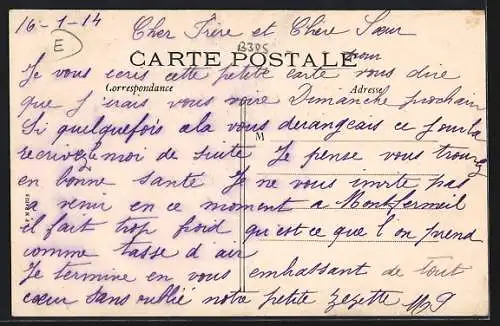 16-1-14 Cher Frère et Chère Sœur
E
B395
CARTE POSTALE
Je vous ecris cette petite carte pour vous dire
Correspondance
Adresse
que j'irais vous voire Dimanche prochain
Si quelquefois ala vous derangeais ce jour la
M
recrivez moi de suite Je pense vous trouvez
en bonne santé Je ne vous invite pas
a venir en ce moment a Montfermeil
il fait trop froid qu'est ce que l'on prend
comme tasse d'air
Je termine en vous embrassant de tout
cœur sans oublié notre petite zezette